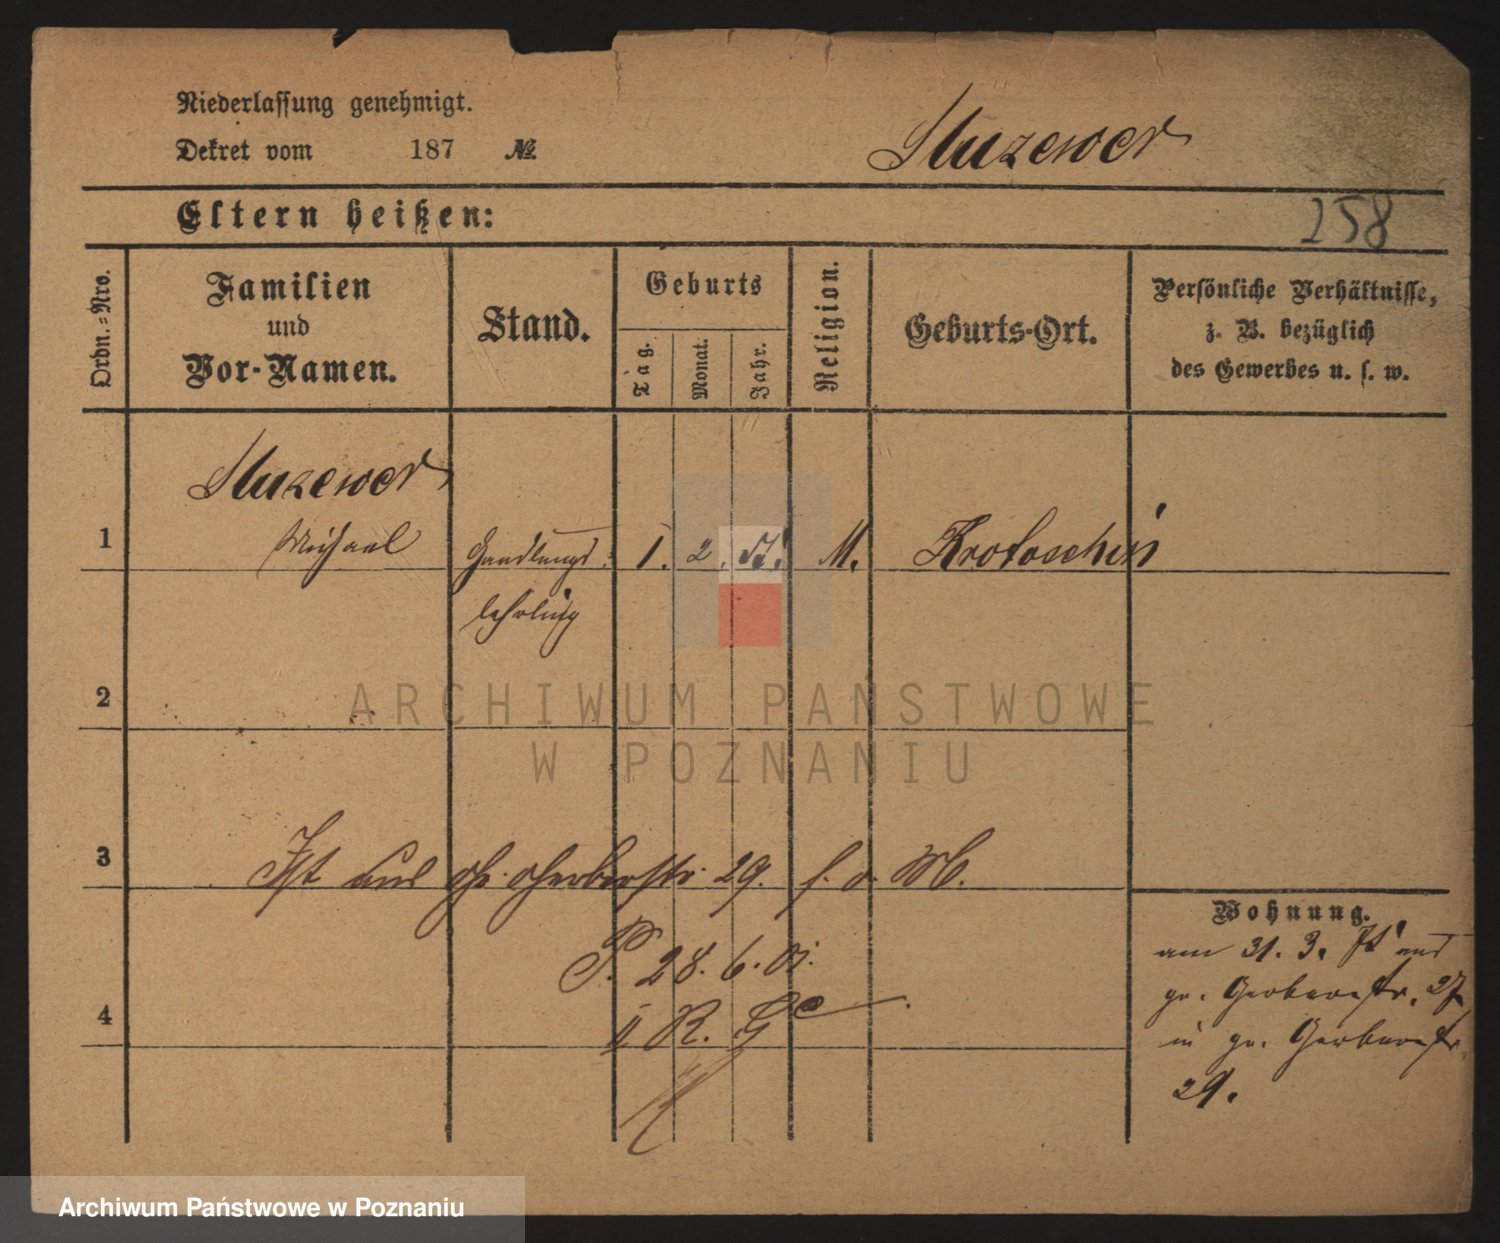 Niederlassung genehmigt.
Dekret vom 187 №
Sluzewer
Eltern heißen:
258
Ordn.=Nro.
Familien
und
Vor-Namen.
Stand.
Geburts
Tag.
Monat.
Jahr.
Religion.
Geburts-Ort.
Persönliche Verhältnisse,
z. B. bezüglich
des Gewerbes u. s. w.
Sluzewer
1 Michael Handlungs 1. 2. M. Krotoschin
lehrling
2
ARCHIWUM PAŃSTWOWE
W POZNANIU
3 Ist aus gr. Gerberstr. 29. f. v. M.
P. 28. 6. 01.
4 II R.
Wohnung.
am 31. 3. aus
gr. Gerberstr. 27
in gr. Gerberstr.
29.
Archiwum Państwowe w Poznaniu